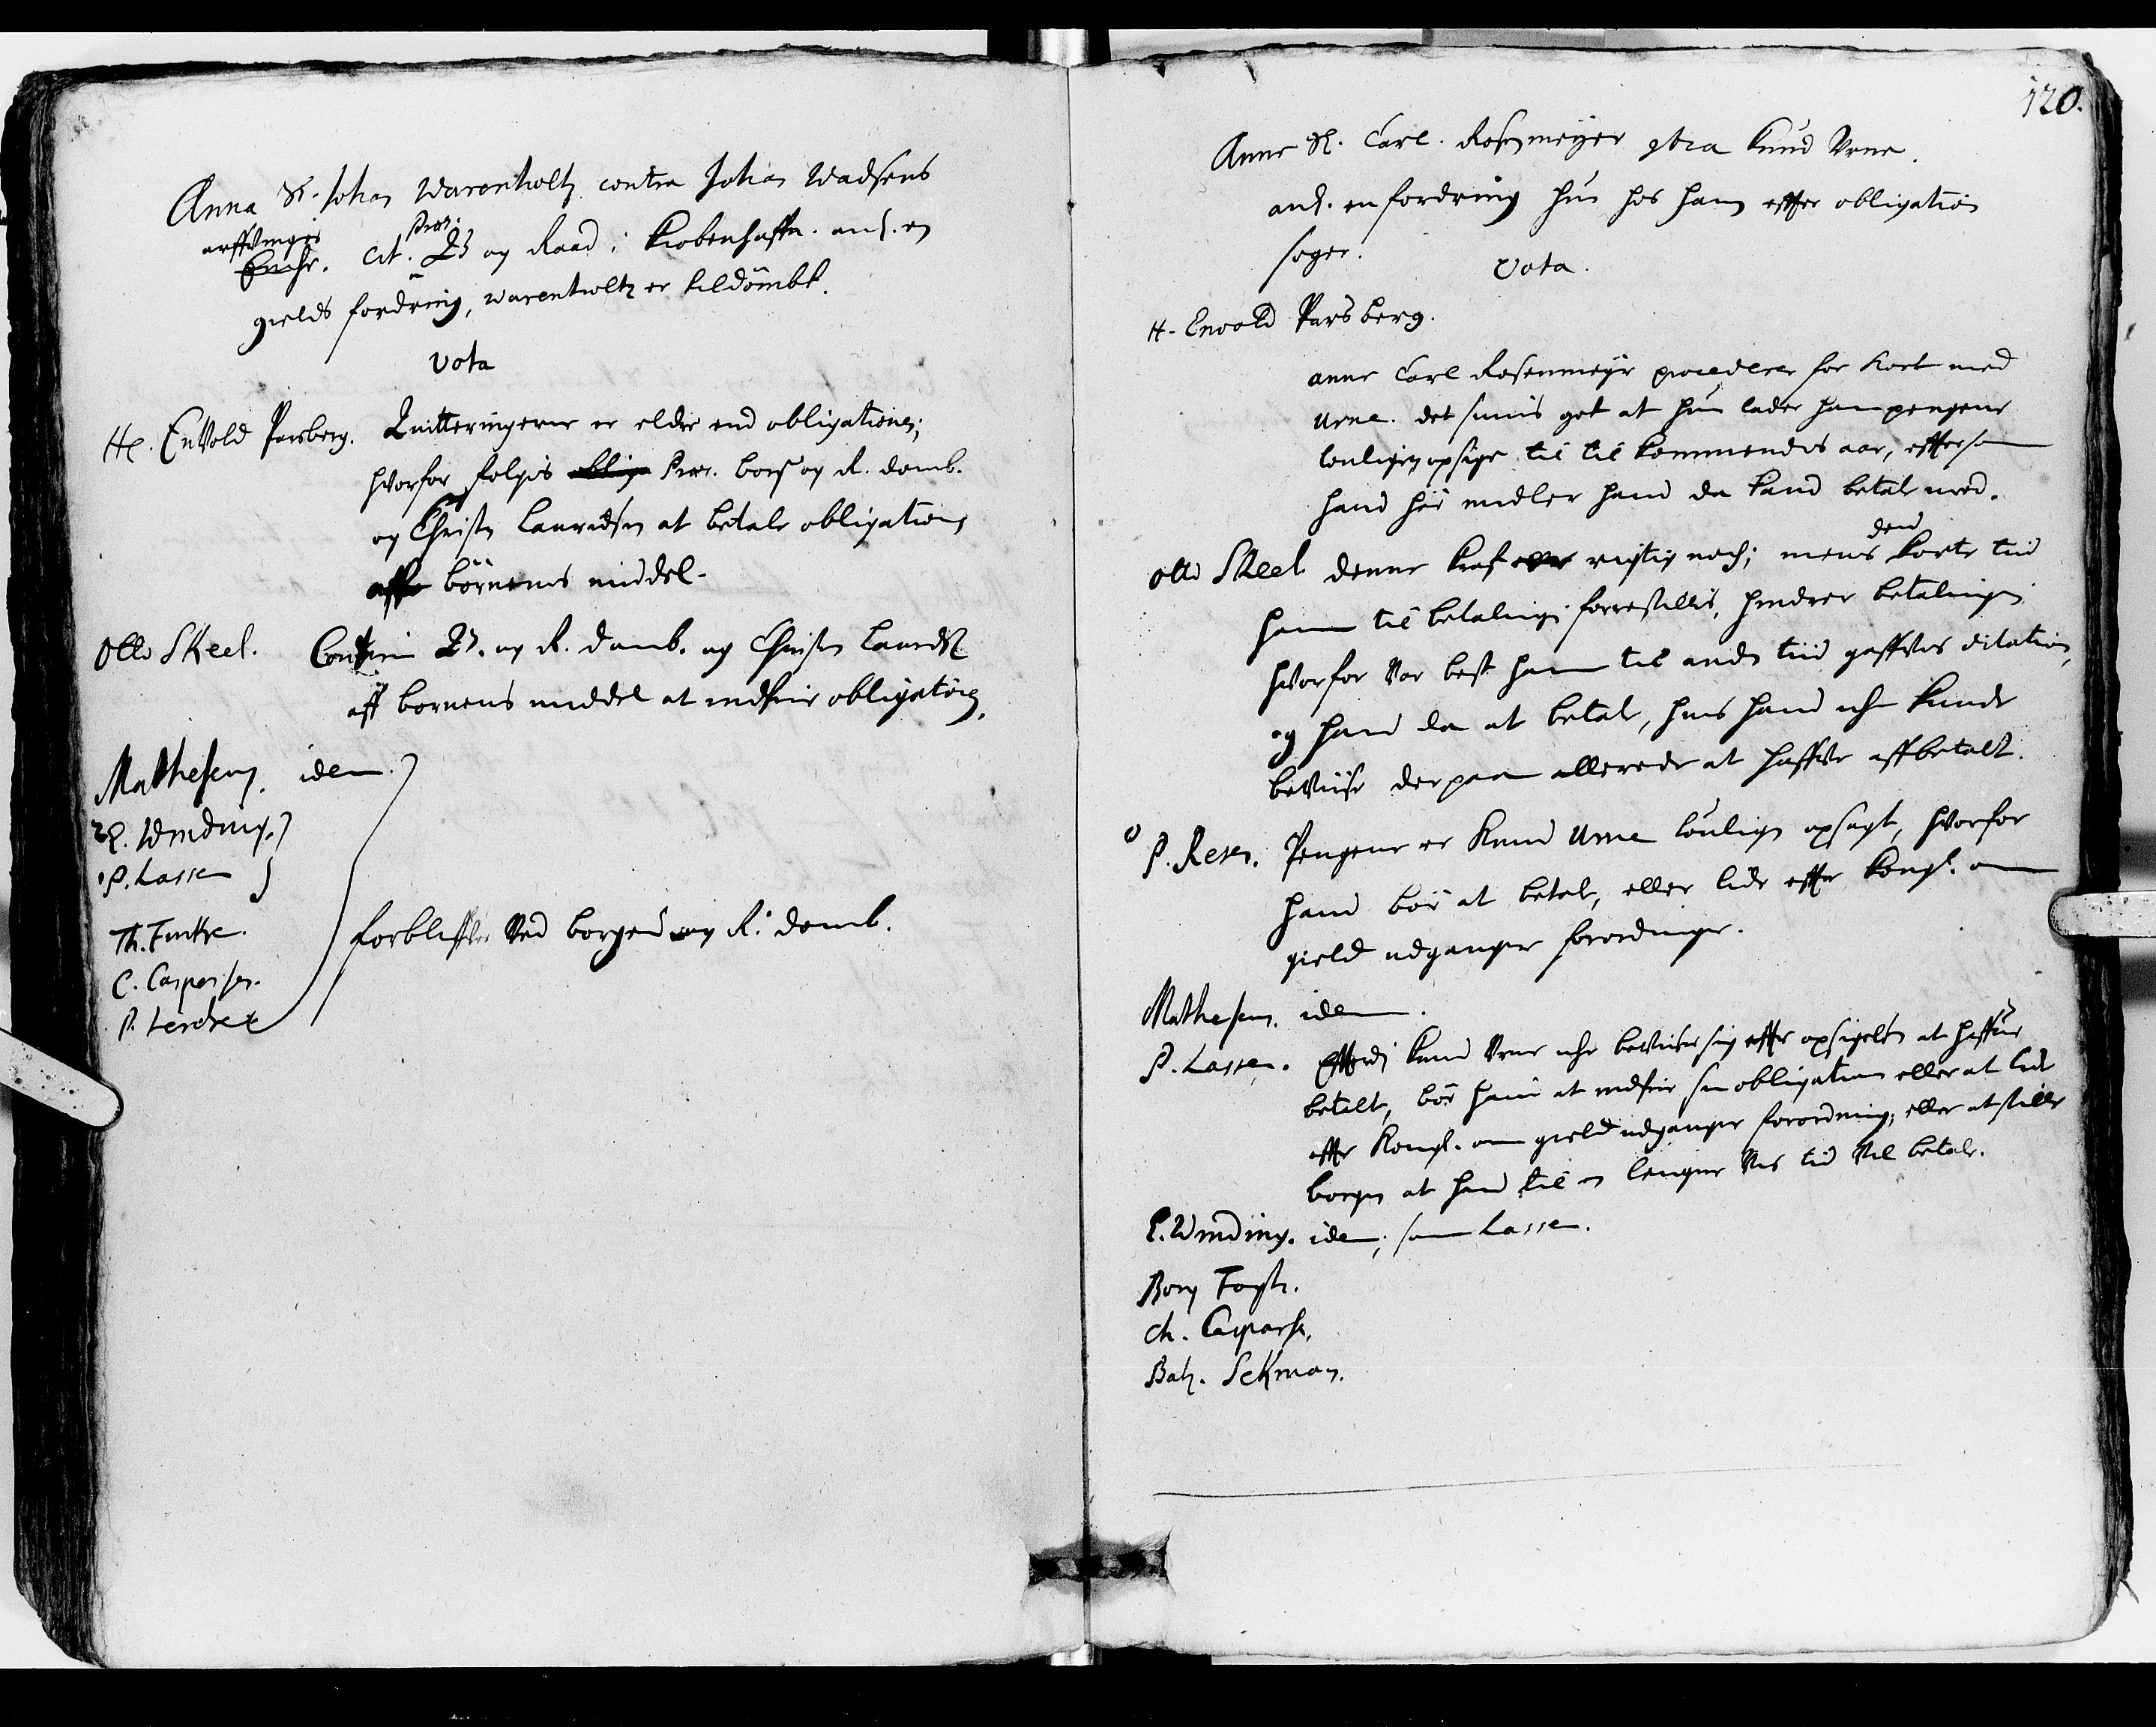 Anna Sl. Johan Warentholtz contra Johan Madsens
arffvinger
Præs:
Cit. B og Raad i Kiøbenhaffn. anl. en
gields fordring, Warentholtz er tildømbt.
vota
Hr. Envold Parsberg. Quitteringerne er eldre end obligationen;
hvorfor følgis Præs. borg og R. domb.
og Christen Lauridsen at betale obligationen
aff børnenes middel.
Otto Skeel. B. og R. domb. og Christen Lauridsz
aff børnens middel at indfrie obligationen.
Mathesen. idem.
2 E. Winding.
1 P. Lassen
Th. Fincke.
forbliffver ved borgem og R: domb.
C. Caspersen.
P. Lerche
120.
Anne Sl. Carl Rosenmeyer contra Knud Urne.
anl. en fordring hun hos ham effter obligation
søger.
Vota.
H. Envold Parsberg.
anne Carl Rosenmeyr procederer for kort med
Urne. det siunis got at hun lader ham pengene
louligen opsige til til kommendis aar, effter som
hand har midler hand da kand betale med.
den
Otto Skeel denne kraf rigtig noch; mens korte tiid
ham til betaling forrestillis, hindrer betalingen
hvorfor var best ham til anden tiid gaffves dilation,
og hand da at betale, huis hand iche kunde
beviise derpaa allerede at haffve affbetalt.
0 P. Resen. Pengene er Knud Urne louligen opsagt, hvorfor
hand bør at betale, eller lide effter kongl. om
gield udgangne forordninger.
Mathesen. idem.
P. Lassen. Efftterdj Knud Urne iche beviser sig effter opsigelsen at haffve
betalt, bør hand at indfrie sin obligation eller at lide
effter Kongl. om gield udgangne forordning, eller at stille
borgen at hand til en lengere vis tid vil betale.
E. Winding. idem, som Lassen.
Borg Trogels.
Ch. Caspersen.
Baltz. Sekman.